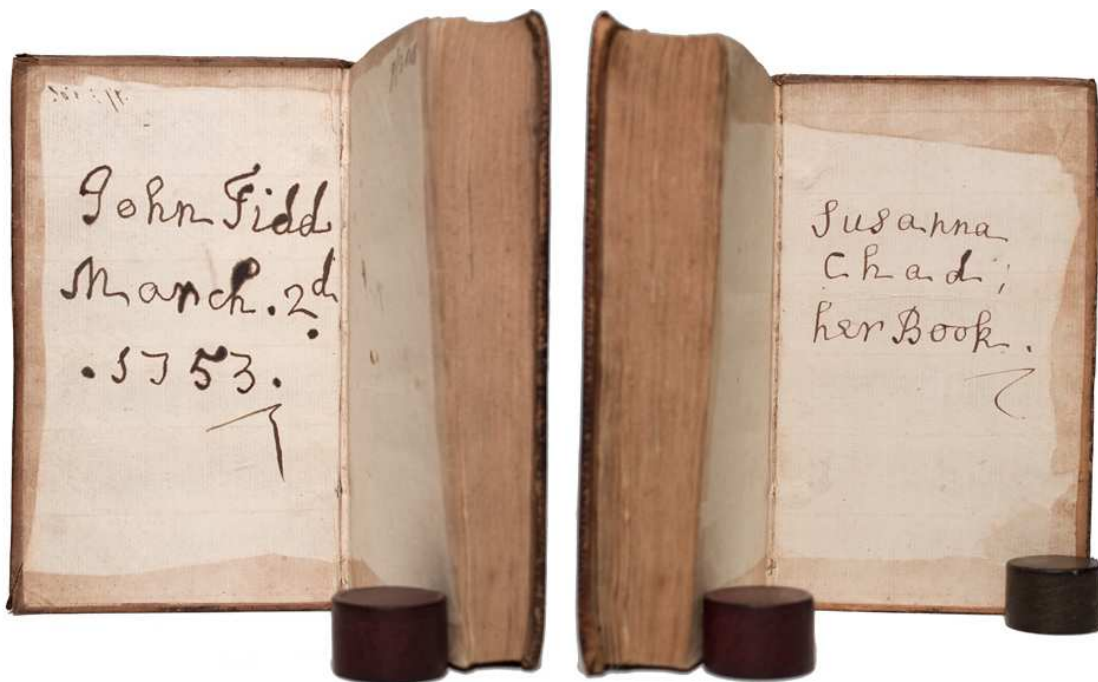 John Fidd
March. 2d
.1753.
Susanna
Chad;
her Book.